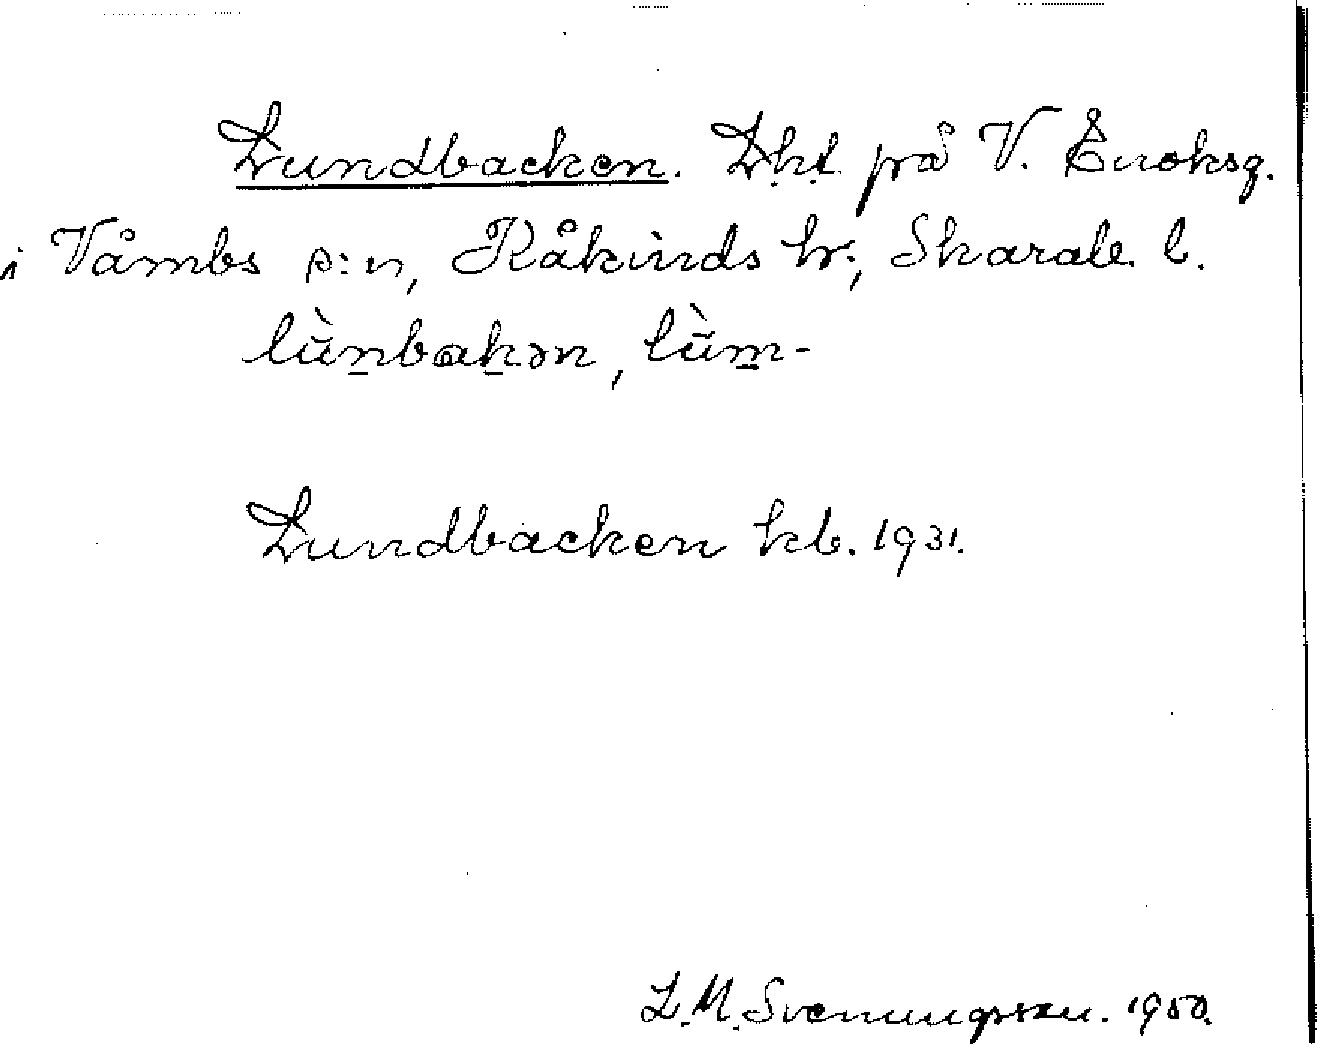 Lundbacken. Lht på V. Enoksg.
i Våmbs s:n, Kåkinds hr, Skarab. l.
lùnbakən, lùm-
Lundbacken kb. 1931.
L. M. Svenungsson. 1950.